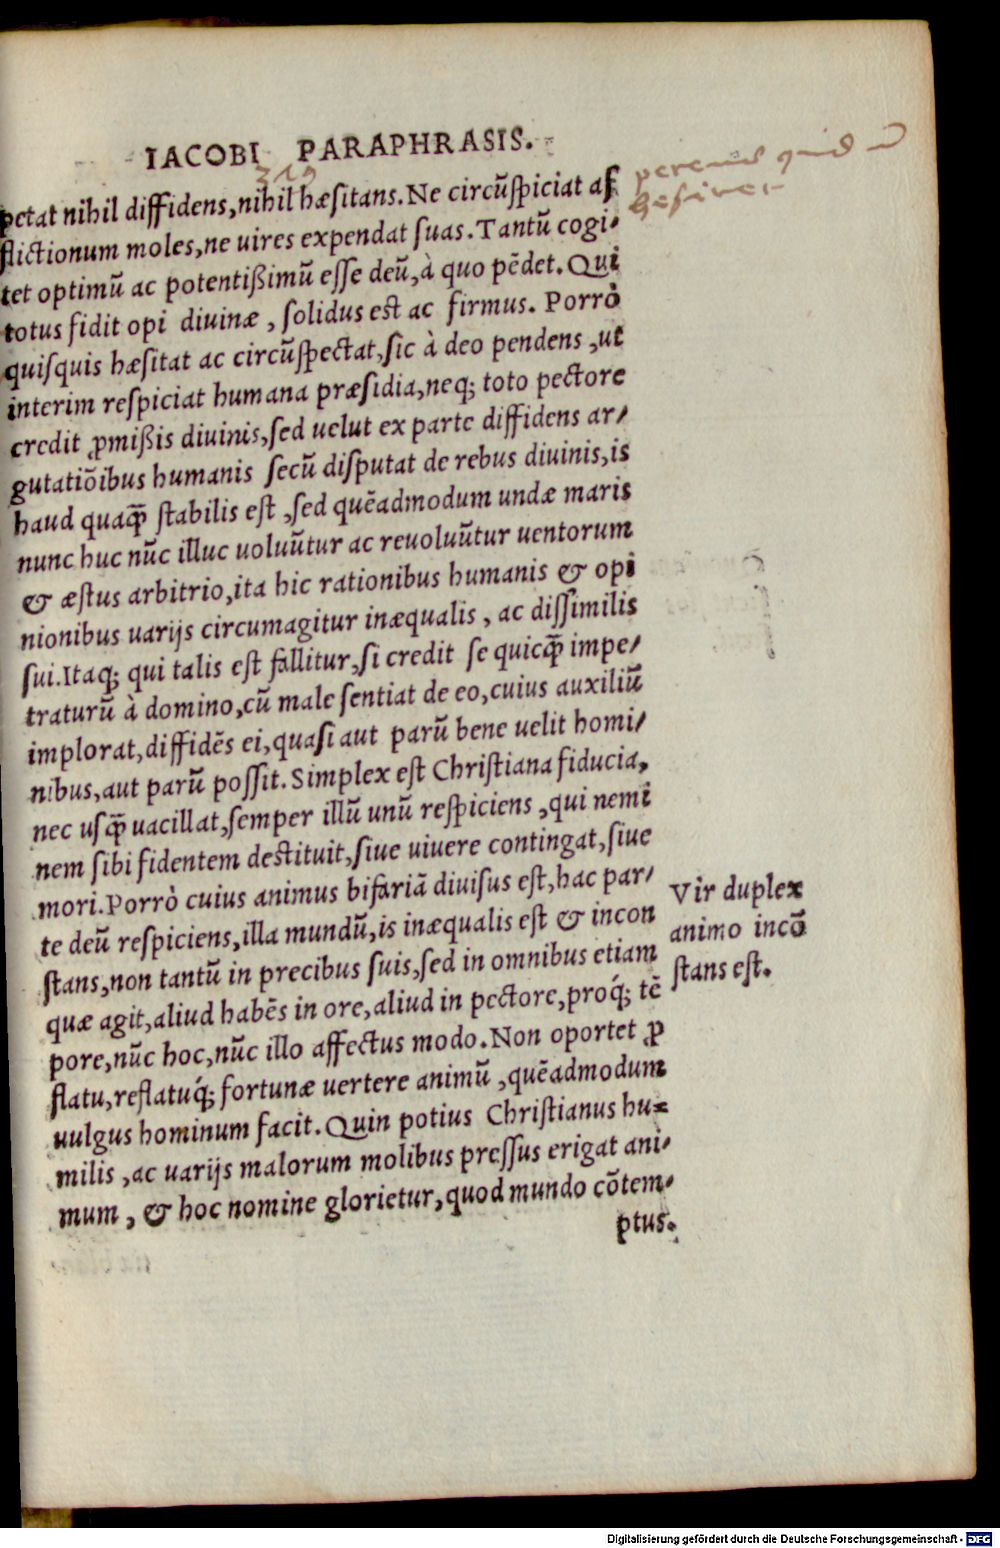 IACOBI PARAPHRASIS.
319
petat nihil diffidens, nihil hæsitans. Ne circũspiciat af
flictionum moles, ne uires expendat suas. Tantũ cogi-
tet optimũ ac potentißimũ esse deũ, à quo pēdet. Qui
totus fidit opi diuinæ, solidus est ac firmus. Porrò
quisquis hæsitat ac circũspectat, sic à deo pendens, ut
interim respiciat humana præsidia, neq; toto pectore
credit ꝓmißis diuinis, sed uelut ex parte diffidens ar-
gutatiõibus humanis secũ disputat de rebus diuinis, is
haud quaq̃ stabilis est, sed quēadmodum undæ maris
nunc huc nũc illuc uoluũtur ac reuoluũtur uentorum
& æstus arbitrio, ita hic rationibus humanis & opi
nionibus uarijs circumagitur inæqualis, ac dissimilis
sui. Itaq; qui talis est fallitur, si credit se quicq̃ impe-
traturũ à domino, cũ male sentiat de eo, cuius auxiliũ
implorat, diffidēs ei, quasi aut parũ bene uelit homi-
nibus, aut parũ possit. Simplex est Christiana fiducia,
nec usq̃ uacillat, semper illũ unũ respiciens, qui nemi
nem sibi fidentem destituit, siue uiuere contingat, siue
mori. Porrò cuius animus bifariã diuisus est, hac par-
te deũ respiciens, illa mundũ, is inæqualis est & incon
stans, non tantũ in precibus suis, sed in omnibus etiam
quæ agit, aliud habēs in ore, aliud in pectore, proq́; tē
pore, nũc hoc, nũc illo affectus modo. Non oportet ꝓ
flatu, reflatuq́; fortunæ uertere animũ, quēadmodum
uulgus hominum facit. Quin potius Christianus hu-
milis, ac uarijs malorum molibus pressus erigat ani-
mum, & hoc nomine glorietur, quod mundo cõtem-
ptus.
quid
Vir duplex
animo incõ
stans est.
Digitalisierung gefördert durch die Deutsche Forschungsgemeinschaft - DFG